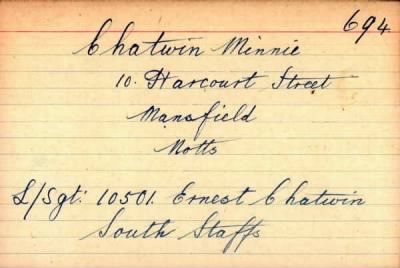 694
Chatwin Minnie
10. Harcourt Street
Mansfield
Notts
L/Sgt: 10501. Ernest Chatwin
South Staffs